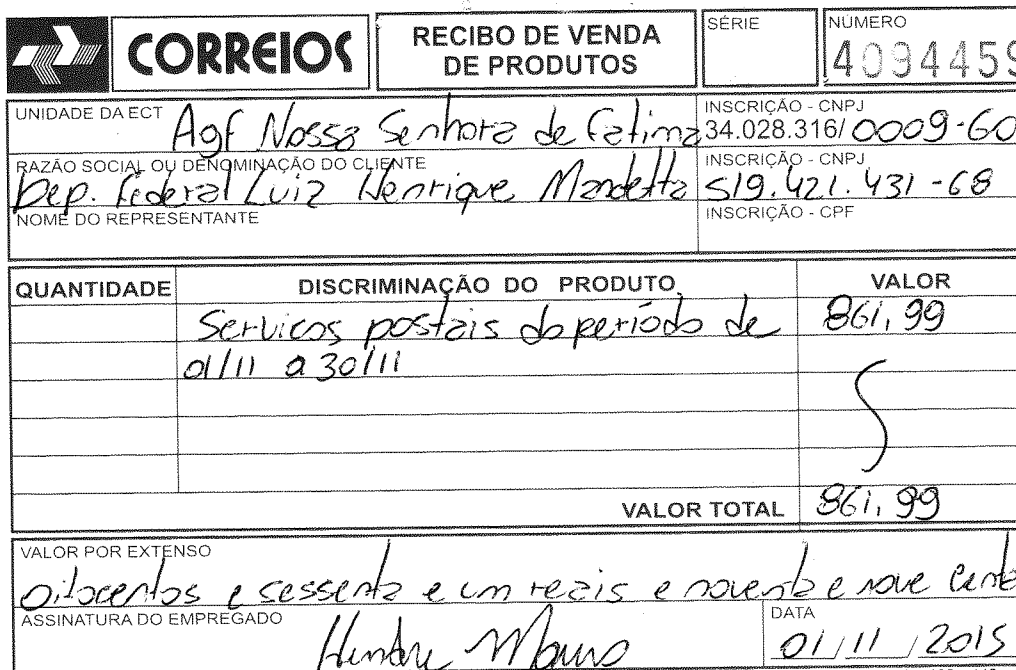 CORREIOS
RECIBO DE VENDA
DE PRODUTOS
SÉRIE
NÚMERO
4094459
UNIDADE DA ECT
Agf Nossa Senhora de Fatima
INSCRIÇÃO - CNPJ
34.028.316/ 0009-60
RAZÃO SOCIAL OU DENOMINAÇÃO DO CLIENTE
Dep. Federal Luiz Henrique Mandetta
INSCRIÇÃO - CNPJ
519.421.431-68
NOME DO REPRESENTANTE
INSCRIÇÃO - CPF
QUANTIDADE DISCRIMINAÇÃO DO PRODUTO VALOR
Serviços postais do período de 861,99
01/11 a 30/11
VALOR TOTAL 861,99
VALOR POR EXTENSO
oitocentos e sessenta e um reais e noventa e nove cent
ASSINATURA DO EMPREGADO
DATA
01/11/2015